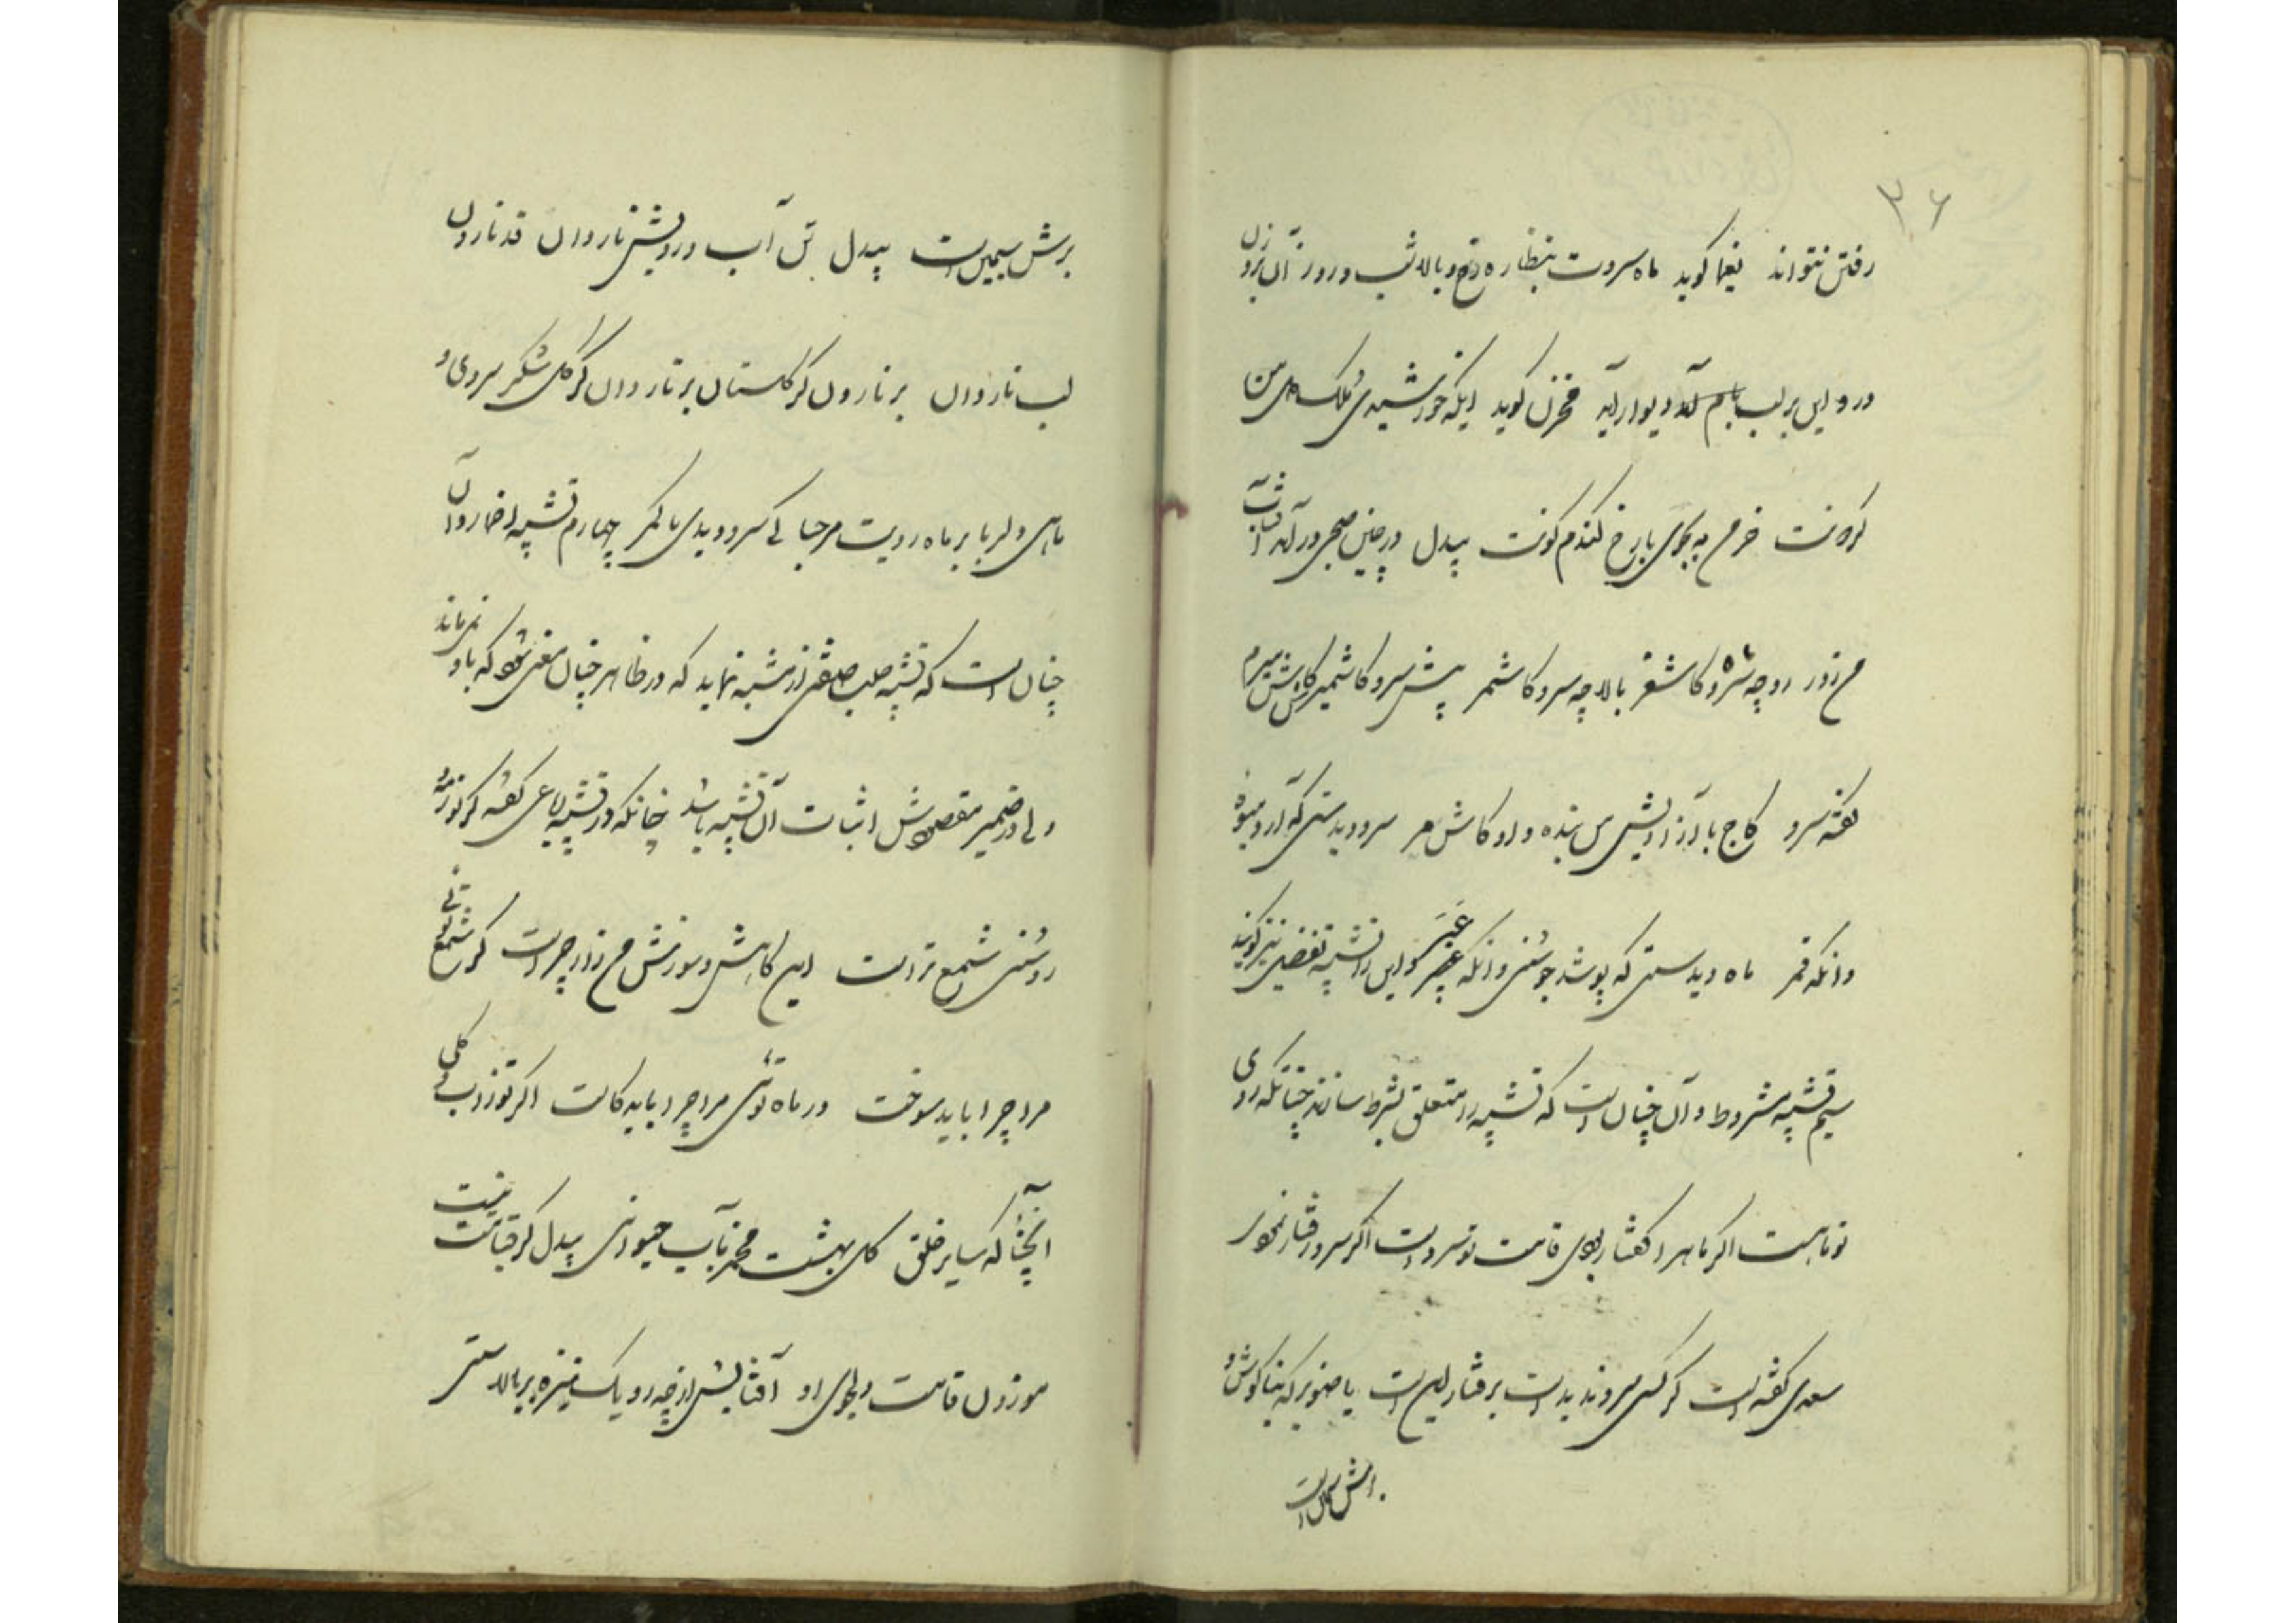 ۳۶
رفتن نتواند یغما گوید ماه سروت بنظاره رخ و بالا شب و روز آن بر و زن
در و این بر لب بام آمد و دیوار آید مخزن گوید ایکه خورشیدی ملک
خرم به بجوی با رخ گندم گونت بیدل در چنین صبحی در آمد آفتاب
رو چه کاشغر بالا چه سرو کاشمر پیش سرو کاشمیر
گفته سرو کاج بنده و او سرو دیدستی که آرد میوه
وانکه قمر ماه دیدستی که پوشد جوشن وانکه عنبر و این را تشبیه تفضیل نیز گویند
سیم تشبیه مشروط و آن چنان است که تشبیه را متعلق بشرط سازند چنانکه روی
تو ماهست اگر ماه را گفتار بودی قامت تو سرو است اگر سرو رفتار نمودی
سعدی گفته است گر کسی سرو ندیدست برفتار این است یا صنوبر که بناگوش و
برش سیمین است
برش سیمین است بیدل تن آب و رویش ناروان قد نارون
لب ناروان بر نارون گر گلستان بر ناروان گر گل شکر سروی و
ماهی دلربا بر ماه رویت مرحبا کی سرو دیدی با کمر چهارم تشبیه اضمار و آن
چنان است که تشبیه نماید که در ظاهر چنان معنی شود که باو نمی‌ماند
ولی در ضمیر مقصودش اثبات آن تشبیه باشد چنانکه در تشبیه رباعی گفته گر نور مه و
روشنی شمع تراست این کاهش و سوزش من زار چراست گر شمع توئی
مرا چرا باید سوخت ور ماه توئی مرا چرا باید کاست اگر تو زآب و گلی
آنچنانکه سایر خلق گل بهشت مخمر بآب حیوانی بیدل گر قیامت نیست
موزون قامت دلجوی او آفتابش از چه رو یک نیزه بر بالاستی